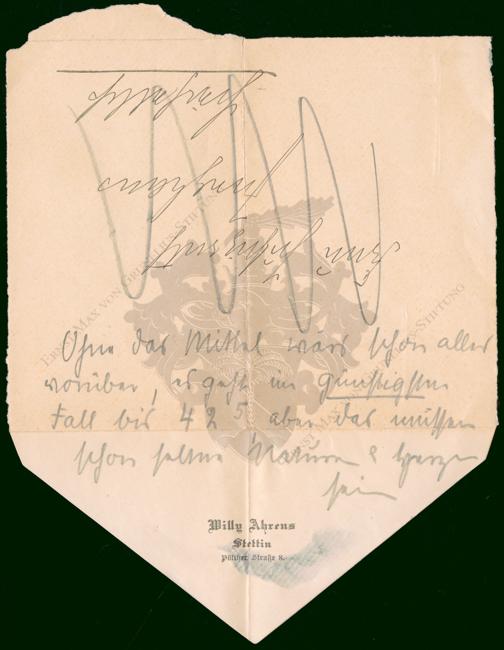 Ohne das Mittel wärs schon alles
vorüber, es geht im günstigsten
Fall bis 42⁵, aber das müssen
schon seltne Naturen & Herzen
sein
Willy Ahrens
Stettin
Pölitzer Straße 8.
ERNST MAX VON GRUNELIUS-STIFTUNG
ERNST MAX VON GRUNELIUS-STIFTUNG